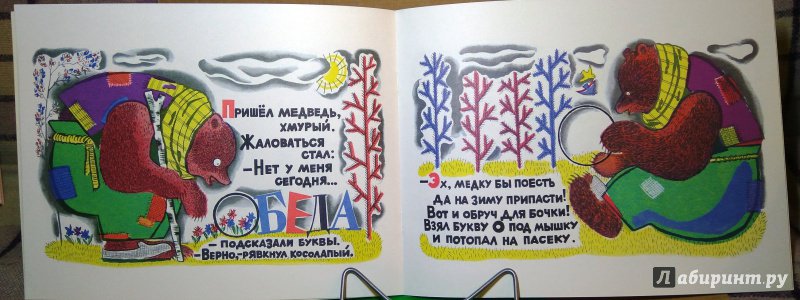 Пришёл медведь,
хмурый.
Жаловаться
стал:
—Нет у меня
сегодня...
ОБЕДА
—подсказали буквы.
—Верно,—рявкнул косолапый.
—Эх, медку бы поесть
Да на зиму припасти!
Вот и обруч для бочки!
Взял букву О под мышку
и потопал на пасеку.
Лабиринт.ру